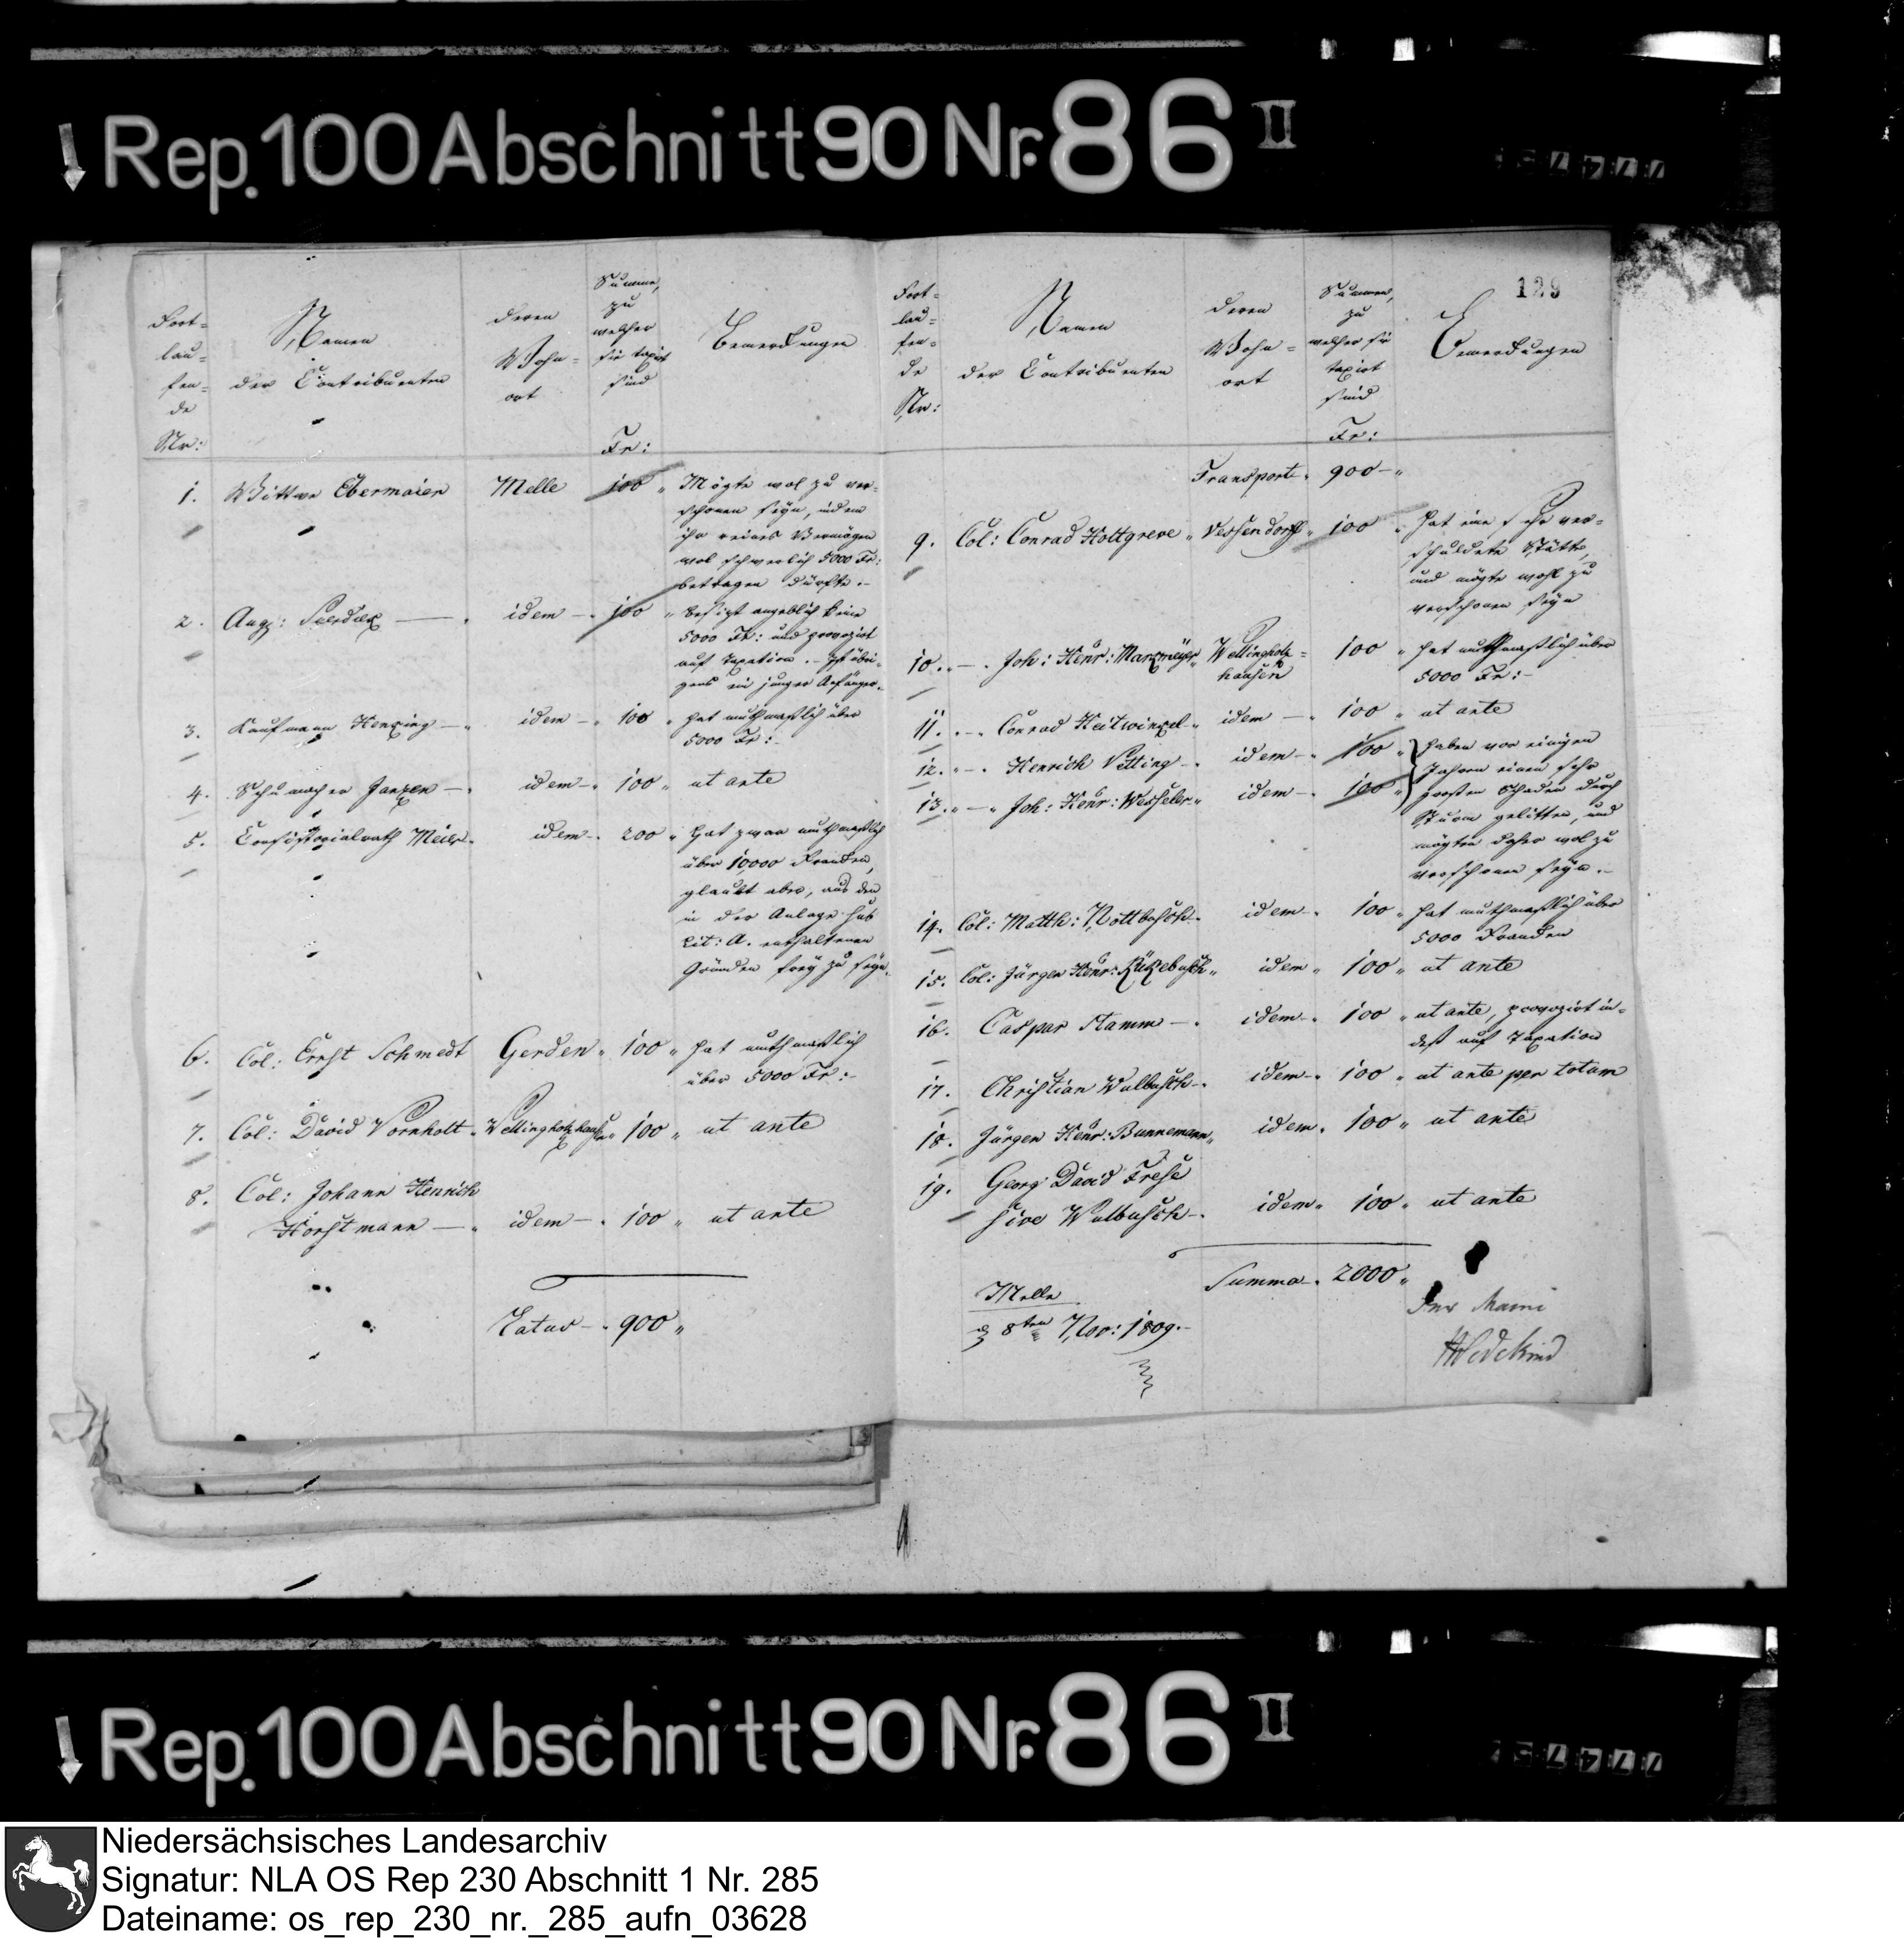 Rep. 100 Abschnitt 90 Nr. 86 II
Fort-
lau-
fen-
de
Nr:
Namen
der Contribuenten
deren
Wohn-
ort
Summe,
zu
welcher
sie taxirt
sind
Fr:
Bemerkungen
1. Wittwe Ebermaier Melle 100 " Mögte wol zu ver-
schonen seyn, indem
ihr reines Vermögen
wol schwerlich 5000 Fr:
betragen dürfte.-
2. Aug: idem - " 100 " besizt angeblich keine
5000 Fr: und provozirt
auf Taxation. - Ist übri-
gens ein junger Anfänger.
3. Kaufmann Henxing - " idem - " 100 " hat muthmaßlich über
5000 Fr:-
4. Schumacher Janzen - " idem - " 100 " ut ante
5. Consistorialrath Meier " idem - " 200 " Hat zwar muthmaßlich
über 10,000 Franken,
glaubt aber, aus den
in der Anlage sub
Lit: A. enthaltenen
Gründen frey zu seyn.
6. Col: Ernst Schmedt Gerden " 100 " hat muthmaßlich
über 5000 Fr:-
7. Col: David Vornholt " Wellingholzhausen " 100 " ut ante
8. Col: Johann Henrich
Horstmann - " idem - " 100 " ut ante
Latus - " 900 "
129
Fort-
lau-
fen-
de
Nr:
Namen
der Contribuenten
deren
Wohn-
ort
Summen,
zu
welcher sie
taxirt
sind
Fr:
Bemerkungen
Transport " 900 - "
9. Col: Conrad Holtgreve " Vessendorff " 100 " hat eine sehr ver-
schuldete Stätte,
und mögte wohl zu
verschonen seyn
10. " - " Joh: Henr: Manxmeyer " Wellingholz-
hausen 100 " hat muthmaßlich über
5000 Fr:-
11. " - " Conrad Heitwinxel " idem - " 100 " ut ante
12. " - " Henrich Vetting - " idem - " 100 " haben vor einigen
13. " - " Joh: Henr: Wesseler " idem - " 100 " Jahren einen sehr
großen Schaden durch
Sturm gelitten, und
mögten daher wol zu
verschonen seyn.-
14. Col: Matth: Nottbusch - " idem - " 100 " hat muthmaßlich über
5000 Franken
15. Col: Jürgen Henr: Kükebusch " idem " 100 " ut ante
16. Caspar Stamm - " idem - " 100 " ut ante, provozirt in-
deß auf Taxation
17. Christian Wulbusch - " idem - " 100 " ut ante per totum
18. Jürgen Henr: Bunnemann " idem " 100 " ut ante
19. Georg David Frese
sive Wulbusch - " idem " 100 " ut ante
Summa - " 2000 "
Melle
d 8ten Nov: 1809.-
Der Maire
Wedekind
Rep. 100 Abschnitt 90 Nr. 86 II
Niedersächsisches Landesarchiv
Signatur: NLA OS Rep 230 Abschnitt 1 Nr. 285
Dateiname: os_rep_230_nr._285_aufn_03628